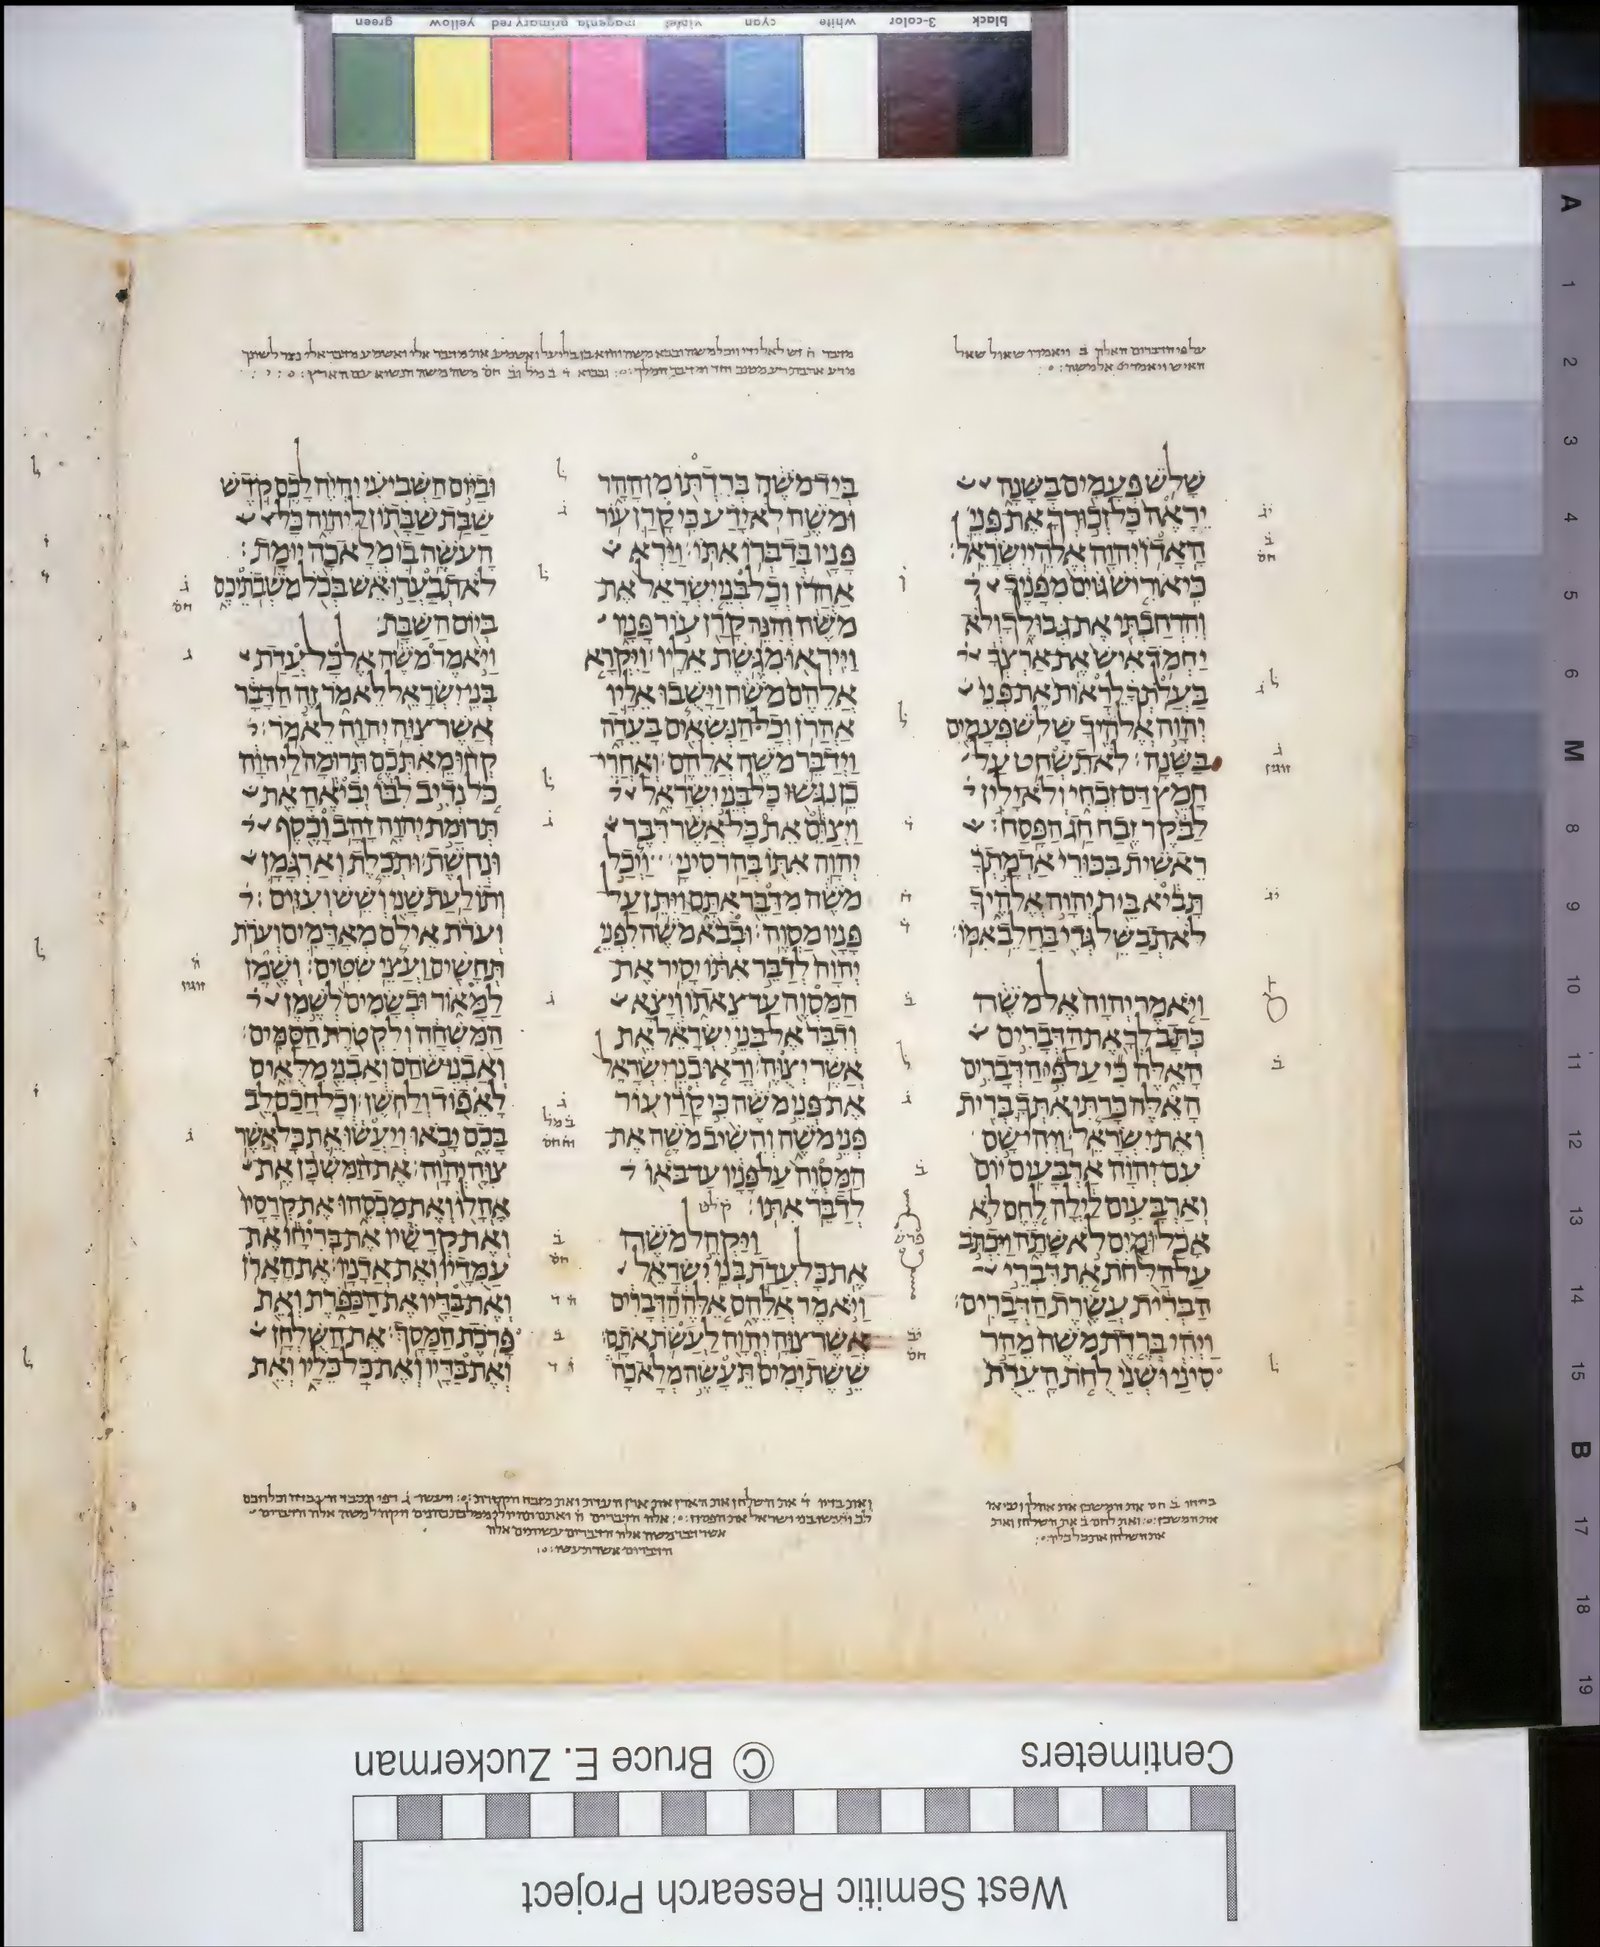 שָׁלֹשׁ פְּעָמִים בַּשָּׁנָה
יֵרָאֶה כָּל זְכוּרְךָ אֶת פְּנֵי
הָאָדֹן יְהוָה אֱלֹהֵי יִשְׂרָאֵל׃
כִּי אוֹרִישׁ גּוֹיִם מִפָּנֶיךָ
וְהִרְחַבְתִּי אֶת גְּבוּלֶךָ וְלֹא
יַחְמֹד אִישׁ אֶת אַרְצְךָ
בַּעֲלֹתְךָ לֵרָאוֹת אֶת פְּנֵי
יְהוָה אֱלֹהֶיךָ שָׁלֹשׁ פְּעָמִים
בַּשָּׁנָה׃ לֹא תִשְׁחַט עַל
חָמֵץ דַּם זִבְחִי וְלֹא יָלִין
לַבֹּקֶר זֶבַח חַג הַפָּסַח׃
רֵאשִׁית בִּכּוּרֵי אַדְמָתְךָ
תָּבִיא בֵּית יְהוָה אֱלֹהֶיךָ
לֹא תְבַשֵּׁל גְּדִי בַּחֲלֵב אִמּוֹ׃
וַיֹּאמֶר יְהוָה אֶל מֹשֶׁה
כְּתָב לְךָ אֶת הַדְּבָרִים
הָאֵלֶּה כִּי עַל פִּי הַדְּבָרִים
הָאֵלֶּה כָּרַתִּי אִתְּךָ בְּרִית
וְאֶת יִשְׂרָאֵל׃ וַיְהִי שָׁם
עִם יְהוָה אַרְבָּעִים יוֹם
וְאַרְבָּעִים לַיְלָה לֶחֶם לֹא
אָכַל וּמַיִם לֹא שָׁתָה וַיִּכְתֹּב
עַל הַלֻּחֹת אֵת דִּבְרֵי
הַבְּרִית עֲשֶׂרֶת הַדְּבָרִים׃
וַיְהִי בְּרֶדֶת מֹשֶׁה מֵהַר
סִינַי וּשְׁנֵי לֻחֹת הָעֵדֻת
בְּיַד מֹשֶׁה בְּרִדְתּוֹ מִן הָהָר
וּמֹשֶׁה לֹא יָדַע כִּי קָרַן עוֹר
פָּנָיו בְּדַבְּרוֹ אִתּוֹ׃ וַיַּרְא
אַהֲרֹן וְכָל בְּנֵי יִשְׂרָאֵל אֶת
מֹשֶׁה וְהִנֵּה קָרַן עוֹר פָּנָיו
וַיִּירְאוּ מִגֶּשֶׁת אֵלָיו׃ וַיִּקְרָא
אֲלֵהֶם מֹשֶׁה וַיָּשֻׁבוּ אֵלָיו
אַהֲרֹן וְכָל הַנְּשִׂאִים בָּעֵדָה
וַיְדַבֵּר מֹשֶׁה אֲלֵהֶם׃ וְאַחֲרֵי
כֵן נִגְּשׁוּ כָּל בְּנֵי יִשְׂרָאֵל
וַיְצַוֵּם אֵת כָּל אֲשֶׁר דִּבֶּר
יְהוָה אִתּוֹ בְּהַר סִינָי׃ וַיְכַל
מֹשֶׁה מִדַּבֵּר אִתָּם וַיִּתֵּן עַל
פָּנָיו מַסְוֶה׃ וּבְבֹא מֹשֶׁה לִפְנֵי
יְהוָה לְדַבֵּר אִתּוֹ יָסִיר אֶת
הַמַּסְוֶה עַד צֵאתוֹ וְיָצָא
וְדִבֶּר אֶל בְּנֵי יִשְׂרָאֵל אֵת
אֲשֶׁר יְצֻוֶּה׃ וְרָאוּ בְנֵי יִשְׂרָאֵל
אֶת פְּנֵי מֹשֶׁה כִּי קָרַן עוֹר
פְּנֵי מֹשֶׁה וְהֵשִׁיב מֹשֶׁה אֶת
הַמַּסְוֶה עַל פָּנָיו עַד בֹּאוֹ
לְדַבֵּר אִתּוֹ׃
וַיַּקְהֵל מֹשֶׁה
אֶת כָּל עֲדַת בְּנֵי יִשְׂרָאֵל
וַיֹּאמֶר אֲלֵהֶם אֵלֶּה הַדְּבָרִים
אֲשֶׁר צִוָּה יְהוָה לַעֲשֹׂת אֹתָם׃
שֵׁשֶׁת יָמִים תֵּעָשֶׂה מְלָאכָה
וּבַיּוֹם הַשְּׁבִיעִי יִהְיֶה לָכֶם קֹדֶשׁ
שַׁבַּת שַׁבָּתוֹן לַיהוָה כָּל
הָעֹשֶׂה בוֹ מְלָאכָה יוּמָת׃
לֹא תְבַעֲרוּ אֵשׁ בְּכֹל מֹשְׁבֹתֵיכֶם
בְּיוֹם הַשַּׁבָּת׃
וַיֹּאמֶר מֹשֶׁה אֶל כָּל עֲדַת
בְּנֵי יִשְׂרָאֵל לֵאמֹר זֶה הַדָּבָר
אֲשֶׁר צִוָּה יְהוָה לֵאמֹר׃
קְחוּ מֵאִתְּכֶם תְּרוּמָה לַיהוָה
כֹּל נְדִיב לִבּוֹ יְבִיאֶהָ אֵת
תְּרוּמַת יְהוָה זָהָב וָכֶסֶף
וּנְחֹשֶׁת׃ וּתְכֵלֶת וְאַרְגָּמָן
וְתוֹלַעַת שָׁנִי וְשֵׁשׁ וְעִזִּים׃
וְעֹרֹת אֵילִם מְאָדָּמִים וְעֹרֹת
תְּחָשִׁים וַעֲצֵי שִׁטִּים׃ וְשֶׁמֶן
לַמָּאוֹר וּבְשָׂמִים לְשֶׁמֶן
הַמִּשְׁחָה וְלִקְטֹרֶת הַסַּמִּים׃
וְאַבְנֵי שֹׁהַם וְאַבְנֵי מִלֻּאִים
לָאֵפוֹד וְלַחֹשֶׁן׃ וְכָל חֲכַם לֵב
בָּכֶם יָבֹאוּ וְיַעֲשׂוּ אֵת כָּל אֲשֶׁר
צִוָּה יְהוָה׃ אֶת הַמִּשְׁכָּן אֶת
אָהֳלוֹ וְאֶת מִכְסֵהוּ אֶת קְרָסָיו
וְאֶת קְרָשָׁיו אֶת בְּרִיחָו אֶת
עַמֻּדָיו וְאֶת אֲדָנָיו׃ אֶת הָאָרֹן
וְאֶת בַּדָּיו אֶת הַכַּפֹּרֶת וְאֵת
פָּרֹכֶת הַמָּסָךְ׃ אֶת הַשֻּׁלְחָן
וְאֶת בַּדָּיו וְאֶת כָּל כֵּלָיו וְאֵת
green yellow primary red magenta violet cyan white 3-color black
A 1 2 3 4 5 6 M 8 9 10 11 12 13 14 15 B 17 18 19
Centimeters © Bruce E. Zuckerman
West Semitic Research Project